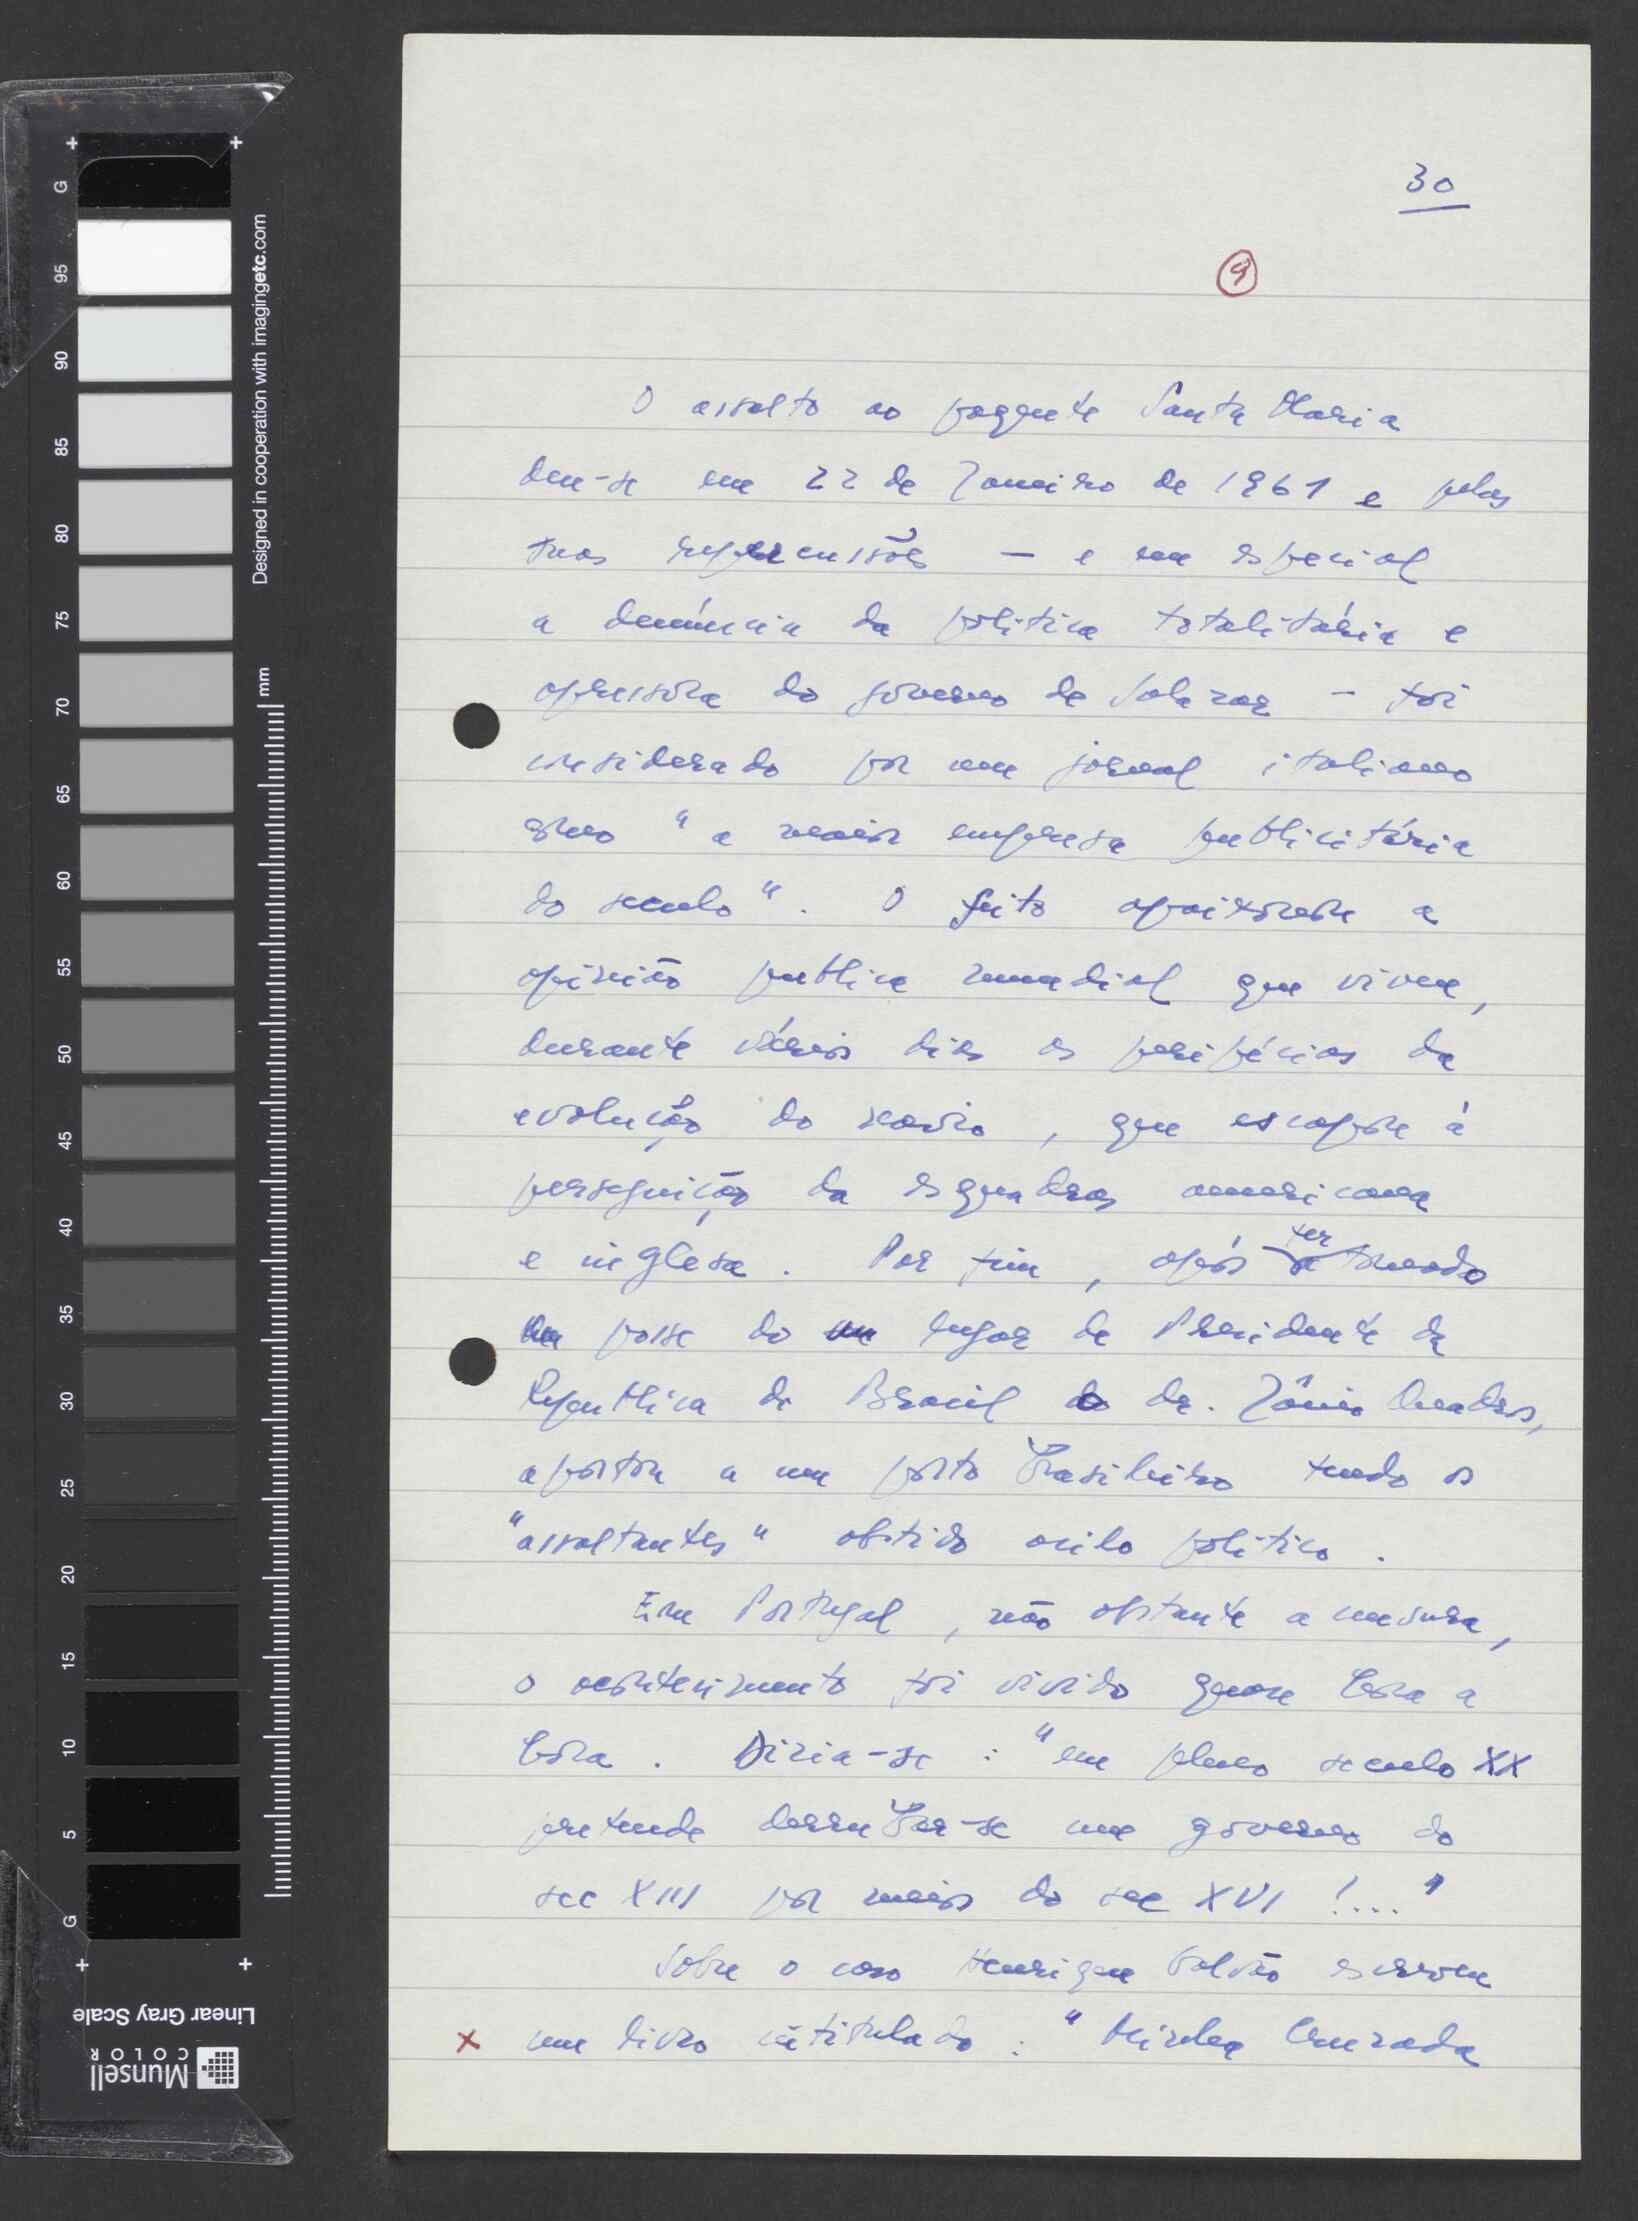 30
9
O assalto ao paquete Santa Maria
deu-se em 22 de Janeiro de 1961 e pelas
suas repercussões – e em especial
a denúncia da politica totalitária e
opressôra do govêrno de Salazar – foi
considerado por um jornal italiano
como "a maior empresa publicitária
do seculo". O feito apaixonou a
opinião publica mundial que viveu,
durante vários dias as peripécias da
evolução do navio, que escapou á
perseguição das esquadras americana
e inglêsa. Por fim, após ter tomado
posse do lugar de Presidente da
Republica do Brasil o dr. Jânio Quadros,
aportou a um porto brasileiro tendo os
"assaltantes" obtido asilo politico.
Em Portugal, não obstante a censura,
o acontecimento foi vivido quase hora a
hora. Dizia-se: "em pleno seculo XX
pretende derrubar-se um governo do
sec XIII por meios do sec XVI !...."
Sobre o caso Henrique Galvão escreveu
x um livro intitulado: "Minha Cruzada
G
95
90
85
80
75
70
65
60
55
50
45
40
35
30
25
20
15
10
5
G
Designed in cooperation with imagingetc.com
mm
Linear Gray Scale
Munsell
COLOR